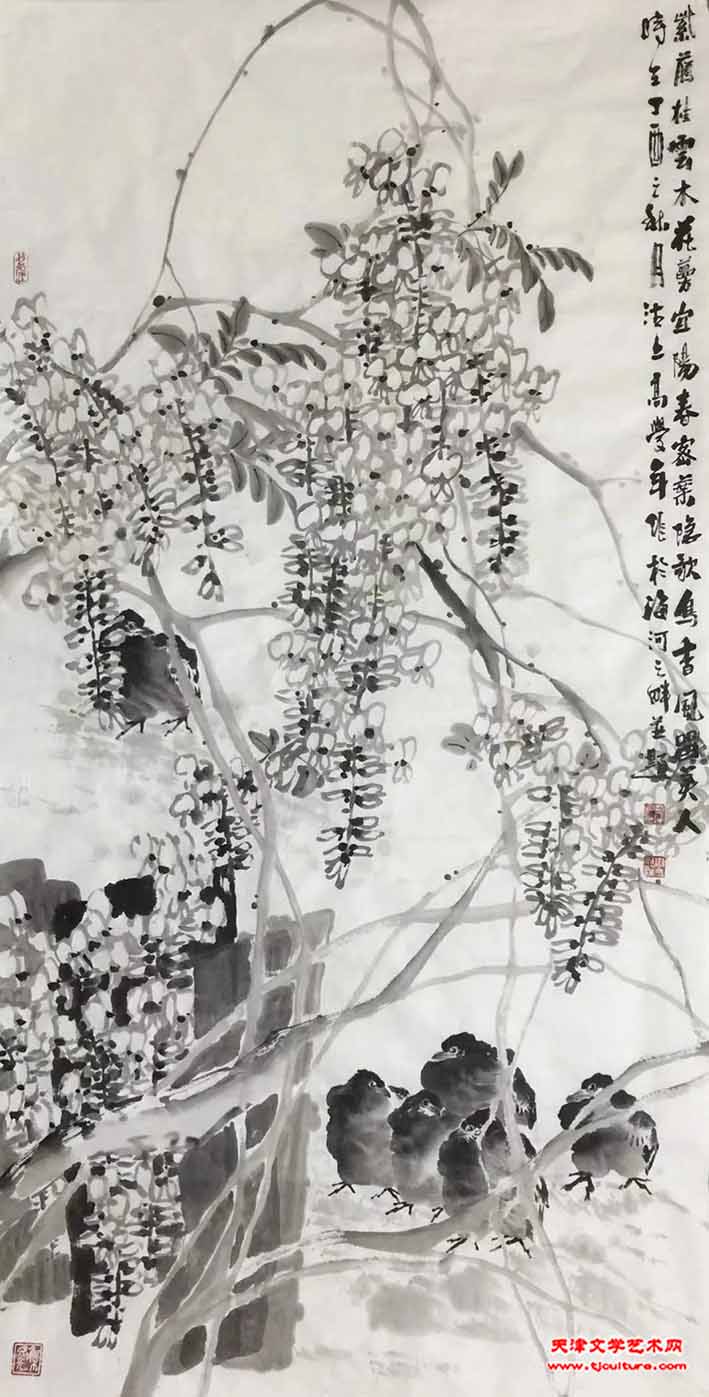 紫藤挂雲木花蔓宜陽春密葉隐歌鳥香風留美人
時在丁酉之秋月沽上高學年作於海河之畔並題
天津文学艺术网
www.tjculture.com